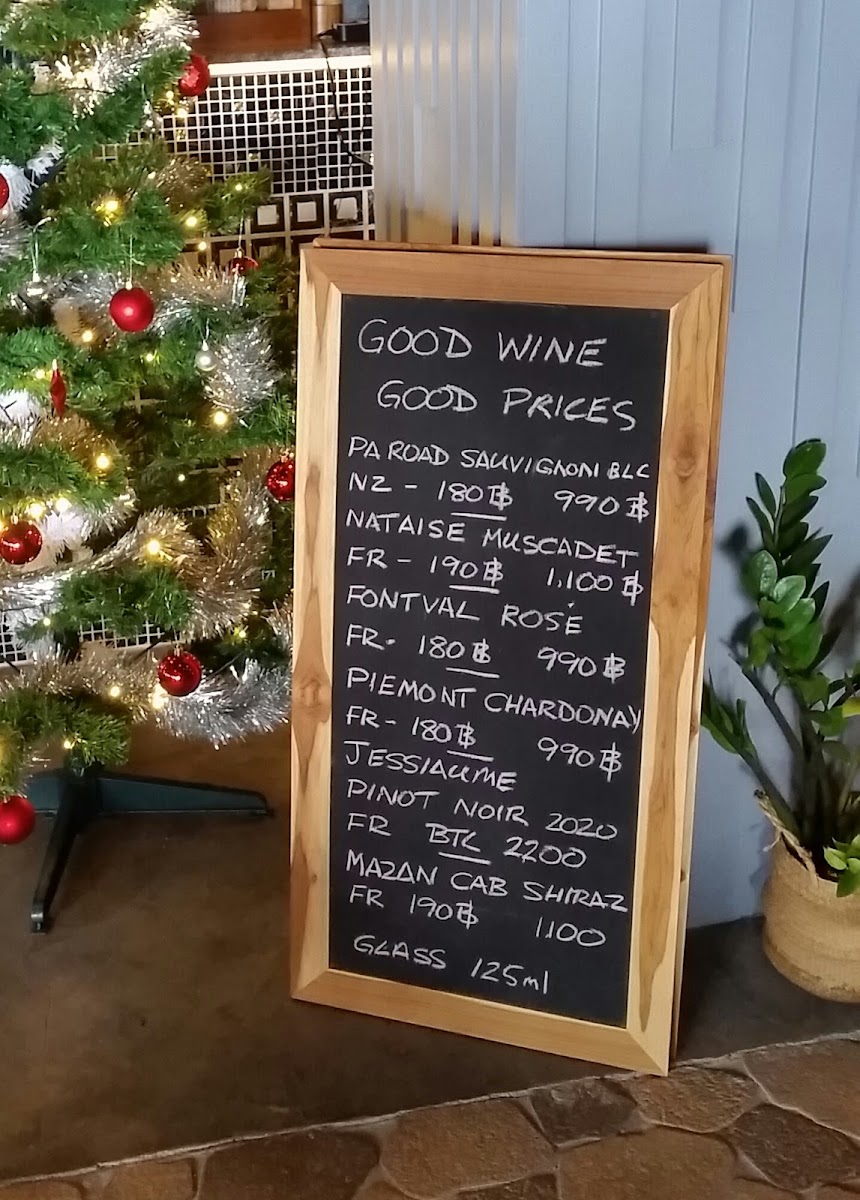 GOOD WINE
GOOD PRICES
PA ROAD SAUVIGNON BLC
NZ - 180฿ 990฿
NATAISE MUSCADET
FR - 190฿ 1,100฿
FONTVAL ROSÉ
FR- 180฿ 990฿
PIEMONT CHARDONAY
FR - 180฿ 990฿
JESSIAUME
PINOT NOIR 2020
FR BTL 2200
MAZAN CAB SHIRAZ
FR 190฿ 1100
GLASS 125ml